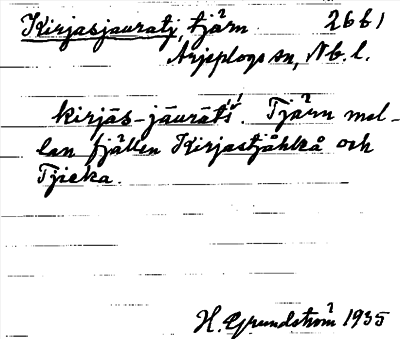 Kirjasjauratj, tjärn 2661
Arjeplogs sn, Nb. l.
kirjās-jāurāt'ś. Tjärn mel-
lan fjällen Kirjastjåhkå och
Tjieka.
H. Grundström 1935